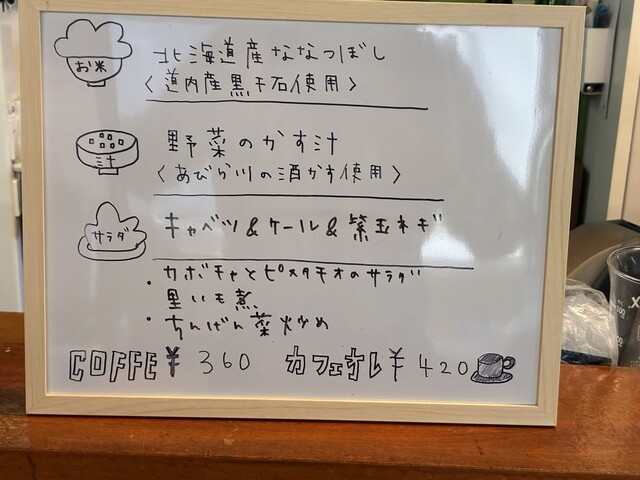 お米
北海道産ななつぼし
〈道内産黒千石使用〉
ミ汁
野菜のかす汁
〈あびら川の酒かす使用〉
サラダ
キャベツ&ケール&紫玉ネギ
・カボチャとピスタチオのサラダ
里いも煮
・ちんげん菜炒め
COFFE¥360 カフェオレ¥420